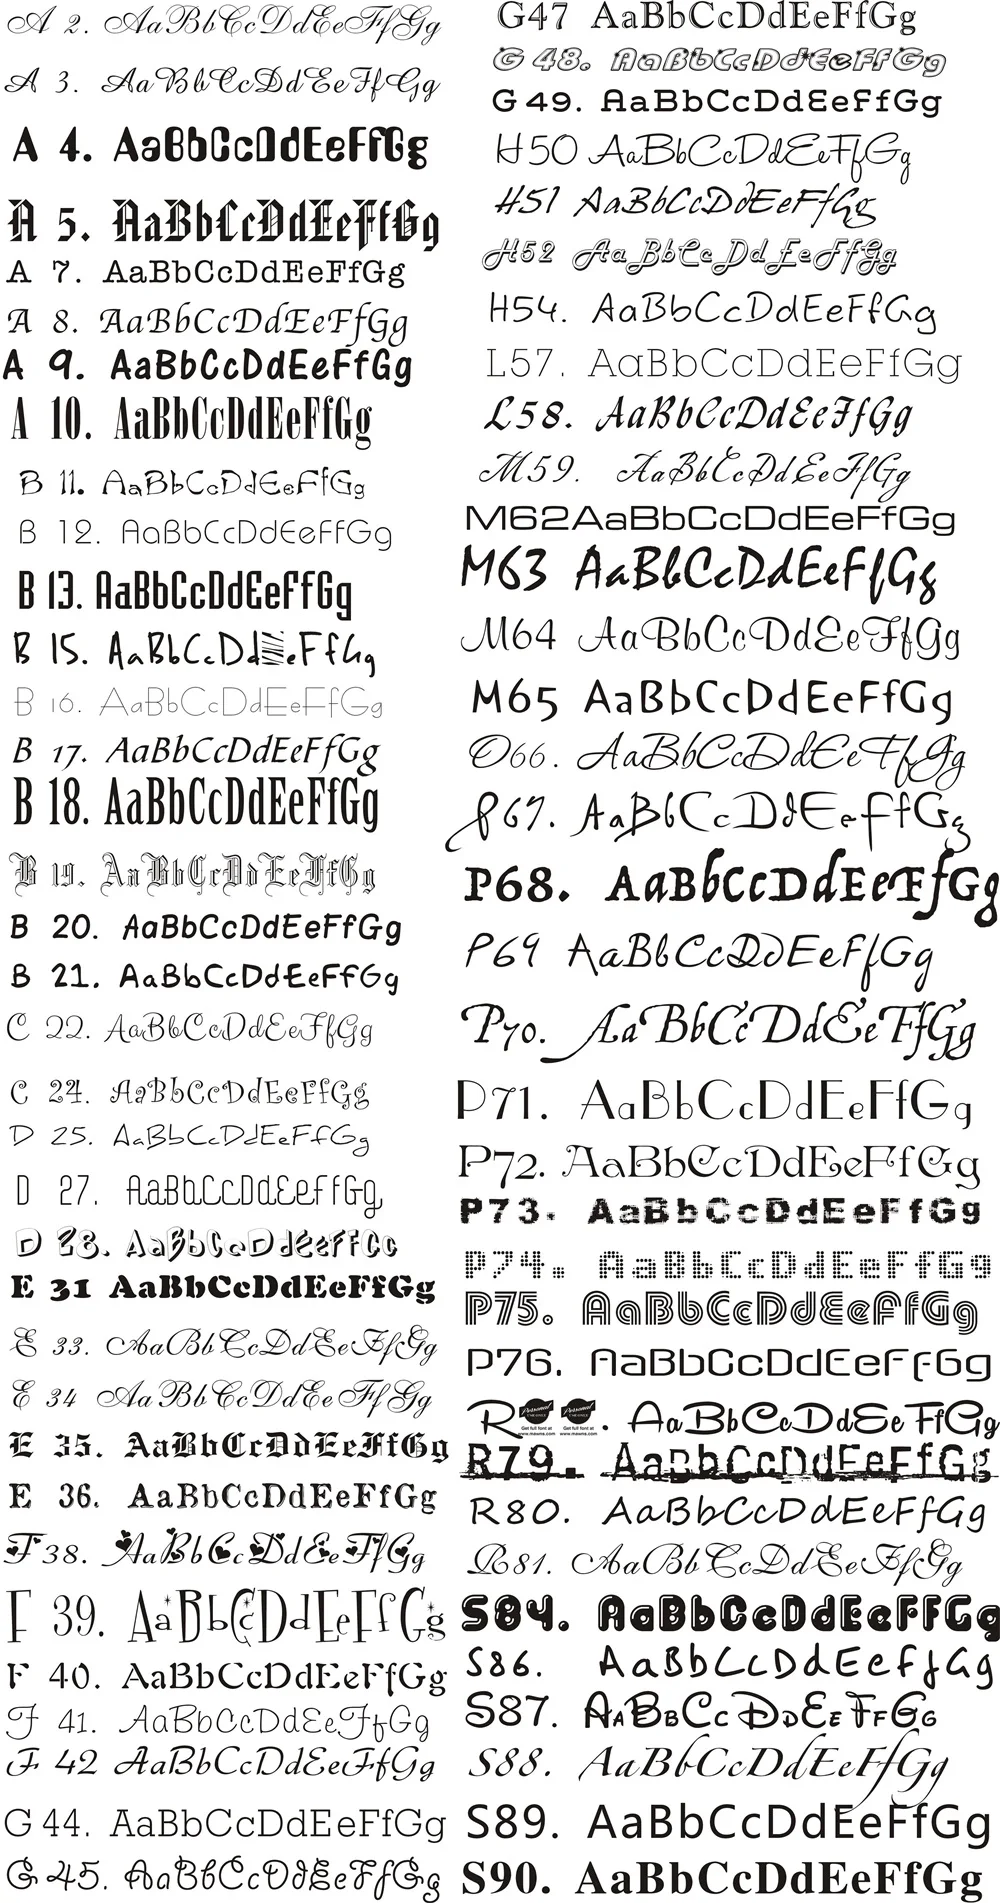 A 2. AaBbCcDdEeFfGg
A 3. AaBbCcDdEeFfGg
A 4. AaBbCcDdEeFfGg
A 5. AaBbCcDdEeFfGg
A 7. AaBbCcDdEeFfGg
A 8. AaBbCcDdEeFfGg
A 9. AaBbCcDdEeFfGg
A 10. AaBbCcDdEeFfGg
B 11. AaBbCcDdEeFfGg
B 12. AaBbCcDdEeFfGg
B 13. AaBbCcDdEeFfGg
B 15. AaBbCcDdeFfGg
B 16. AaBbCcDdEeFfGg
B 17. AaBbCcDdEeFfGg
B 18. AaBbCcDdEeFfGg
B 19. AaBbCcDdEeFfGg
B 20. AaBbCcDdEeFfGg
B 21. AaBbCcDdEeFfGg
C 22. AaBbCcDdEeFfGg
C 24. AaBbCcDdEeFfGg
D 25. AaBbCcDdEeFfGg
D 27. AaBbCcDdEeFfGg
D 28. AaBbCcDdEeFfGg
E 31 AaBbCcDdEeFfGg
E 33. AaBbCcDdEeFfGg
E 34 AaBbCcDdEeFfGg
E 35. AaBbCcDdEeFfGg
E 36. AaBbCcDdEeFfGg
F 38. AaBbCcDdEeFfGg
F 39. AaBbCcDdEeFfGg
F 40. AaBbCcDdEeFfGg
F 41. AaBbCcDdEeFfGg
F 42 AaBbCcDdEeFfGg
G 44. AaBbCcDdEeFfGg
G 45. AaBbCcDdEeFfGg
G47 AaBbCcDdEeFfGg
G 48. AaBbCcDdEeFfGg
G 49. AaBbCcDdEeFfGg
H50 AaBbCcDdEeFfGg
H51 AaBbCcDdEeFfGg
H52 AaBbCcDdEeFfGg
H54. AaBbCcDdEeFfGg
L57. AaBbCcDdEeFfGg
L58. AaBbCcDdEeFfGg
M59. AaBbCcDdEeFfGg
M62AaBbCcDdEeFfGg
M63 AaBbCcDdEeFfGg
M64 AaBbCcDdEeFfGg
M65 AaBbCcDdEeFfGg
O66. AaBbCcDdEeFfGg
P67. AaBbCcDdEeFfGg
P68. AaBbCcDdEeFfGg
P69 AaBbCcDdEeFfGg
P70. AaBbCcDdEeFfGg
P71. AaBbCcDdEeFfGg
P72. AaBbCcDdEeFfGg
P73. AaBbCcDdEeFfGg
P74. AaBbCcDdEeFfGg
P75. AaBbCcDdEeFfGg
P76. AaBbCcDdEeFfGg
R . AaBbCcDdEeFfGg
Get full font at Get full font at
www.mawns.com www.mawns.com
R79. AaBbCcDdEeFfGg
R80. AaBbCcDdEeFfGg
R81. AaBbCcDdEeFfGg
S84. AaBbCcDdEeFfGg
S86. AaBbCcDdEeFfGg
S87. AaBbCcDdEeFfGg
S88. AaBbCcDdEeFfGg
S89. AaBbCcDdEeFfGg
S90. AaBbCcDdEeFfGg